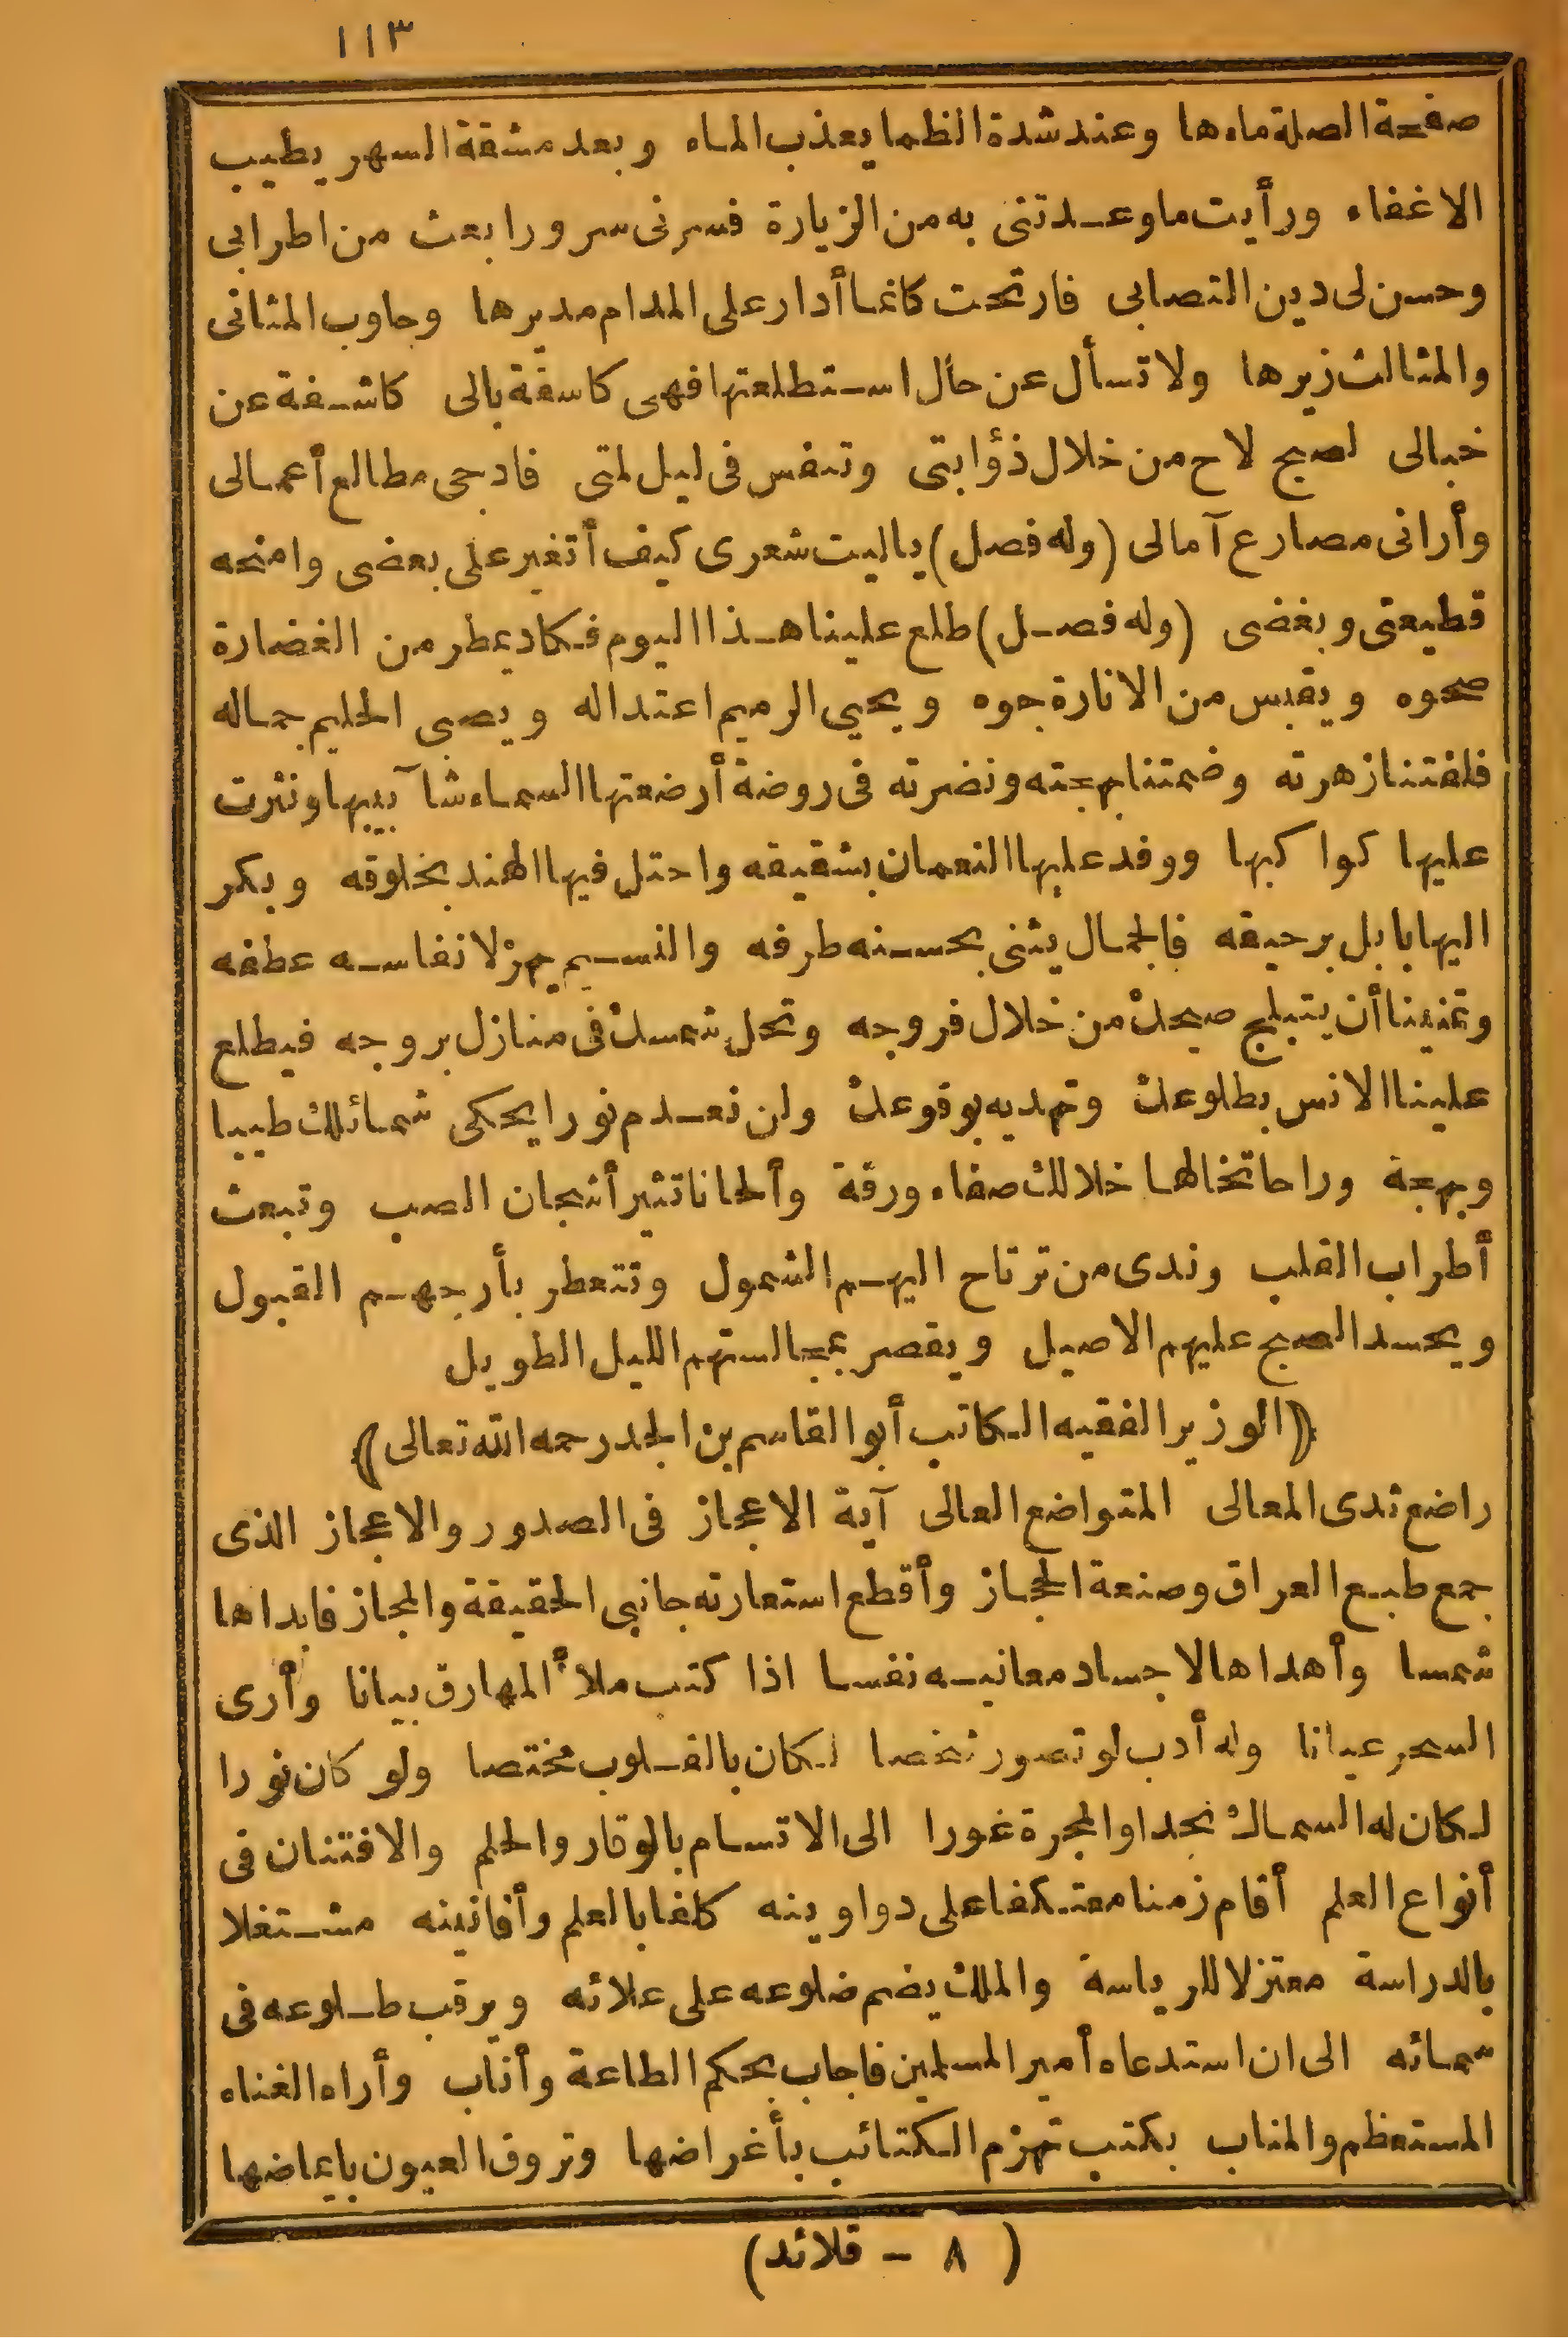 ١١٣
صفحة الصلة ماءها وعند شدة الظما يعذب الماء وبعد مشقة السهر يطيب
الاغفاء ورأيت ما وعدتنى به من الزيارة فسرنى سرورا بعث من اطرابى
وحسن لى دين التصابى فارتحت كانما أدار على المدام مديرها وجاوب المثانى
والمثالث زيرها ولا تسأل عن حال استطلعتها فهى كاسفة بالى كاشفة عن
خبالى لصبح لاح من خلال ذؤابتى وتنفس فى ليل لمتى فادجى مطالع أعمالى
وأرانى مصارع آمالى (وله فصل) ياليت شعرى كيف أتغير على بعضى وامنحه
قطيعتى وبغضى (وله فصل) طلع علينا هذا اليوم فكاد يمطر من الغضارة
صحوه ويقبس من الانارة جوه ويحيى الرميم اعتداله ويصبى الحليم جماله
فلفتنا زهرته وضمتنا بهجته ونضرته فى روضة أرضعتها السماء شآبيبها ونثرت
عليها كواكبها ووفد عليها النعمان بشقيقه واحتل فيها الهند بخلوقه وبكر
اليها بابل برحيقه فالجمال يثنى بحسنه طرفه والنسيم يهز لانفاسه عطفه
وتمنينا أن يتبلج صبحك من خلال فروجه وتحل شمسك فى منازل بروجه فيطلع
علينا الانس بطلوعك وتهديه بوقوعك ولن نعدم نورا يحكى شمائلك طيبا
وبهجة وراحا تخالها خلالك صفاء ورقة وألحانا تثير أشجان الصب وتبعث
أطراب القلب وندى من ترتاح اليهم الشمول وتتعطر بأرجهم القبول
ويحسد الصبح عليهم الاصيل ويقصر بمجالستهم الليل الطويل
﴿الوزير الفقيه الكاتب أبو القاسم بن الجد رحمه الله تعالى﴾
راضع ثدى المعالى المتواضع العالى آية الاعجاز فى الصدور والاعجاز الذى
جمع طبع العراق وصنعة الحجاز وأقطع استعارته جانبى الحقيقة والمجاز فابداها
شمسا وأهداها لاجساد معانيه نفسا اذا كتب ملأ المهارق بيانا وأرى
السحر عيانا وله أدب لو تصور شخصا لكان بالقلوب مختصا ولو كان نورا
لكان له السماك نجدا والمجرة غورا الى الاتسام بالوقار والحلم والافتنان فى
أنواع العلم أقام زمنا معتكفا على دواوينه كلفا بالعلم وأفانينه مشتغلا
بالدراسة معتزلا للرياسة والملك يضم ضلوعه على علائه ويرقب طلوعه فى
سمائه الى ان استدعاه أمير المسلمين فاجاب بحكم الطاعة وأناب وأراه الغناء
المستعظم والمناب بكتب تهزم الكتائب بأغراضها وتروق العيون بايماضها
(٨ - قلائد)